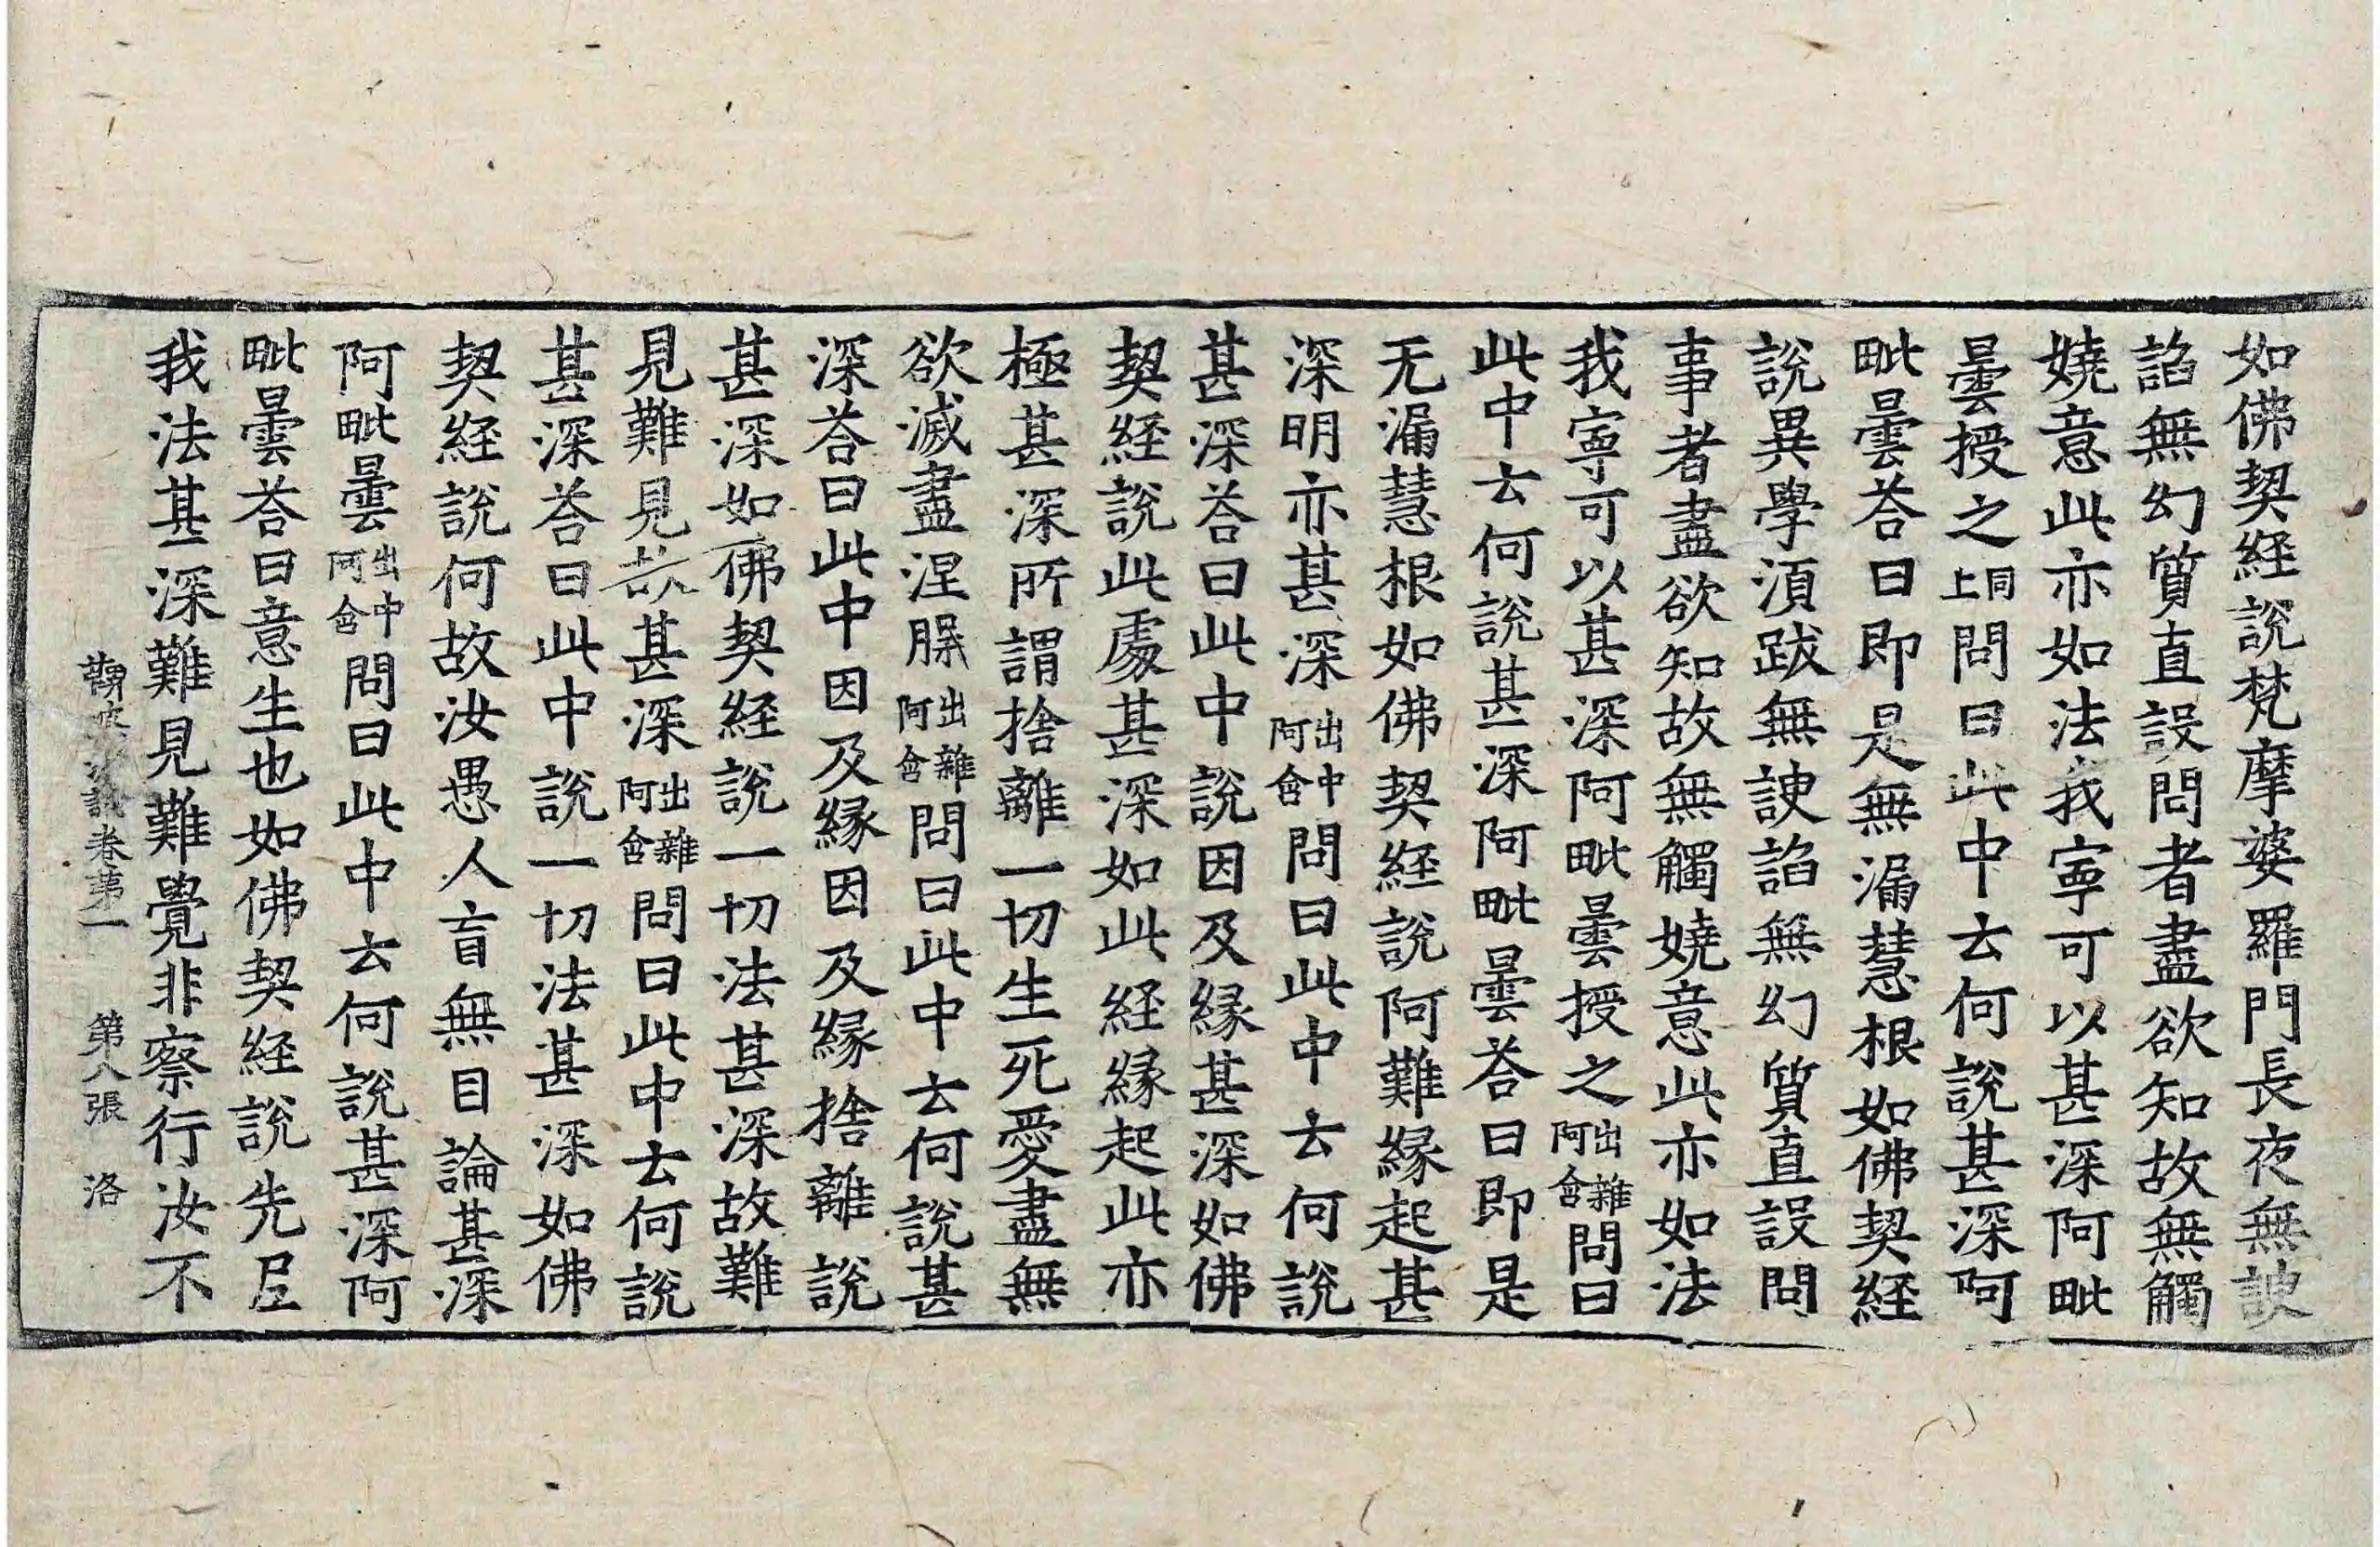 如佛契経說梵摩婆羅門長夜無諛
諂無幻質直設問者盡欲知故無觸
嬈意此亦如法我寧可以甚深阿毗
曇授之同上問曰此中云何說甚深阿
毗曇荅曰即是無漏慧根如佛契経
說異學湏跋無諛諂無幻質直設問
事者盡欲知故無觸嬈意此亦如法
我寧可以甚深阿毗曇授之出雜阿含問曰
此中云何說甚深阿毗曇荅曰即是
无漏慧根如佛契経說阿難縁起甚
深明亦甚深出中阿含問曰此中云何說
甚深荅曰此中說因及縁甚深如佛
契経說此處甚深如此経縁起此亦
極甚深所謂捨離一切生死愛盡無
欲滅盡涅槃出雜阿含問曰此中云何說甚
深荅曰此中因及縁因及縁捨離說
甚深如佛契経說一切法甚深故難
見難見故甚深出雜阿含問曰此中云何說
甚深荅曰此中說一切法甚深如佛
契経說何故汝愚人盲無目論甚深
阿毗曇出中阿含問曰此中云何說甚深阿
毗曇荅曰意生也如佛契経說先尼
我法甚深難見難覺非察行汝不
鞞婆沙論卷第一 第八張 洛